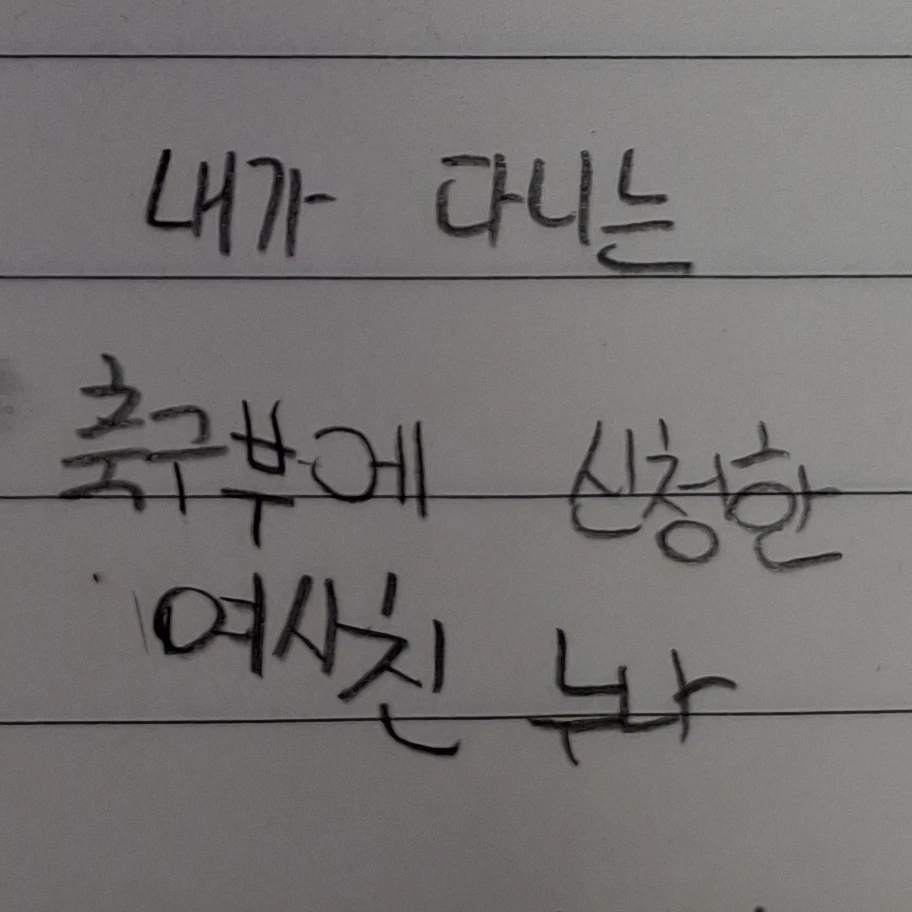 내가 다니는
축구부에 신청한
여사친 누나